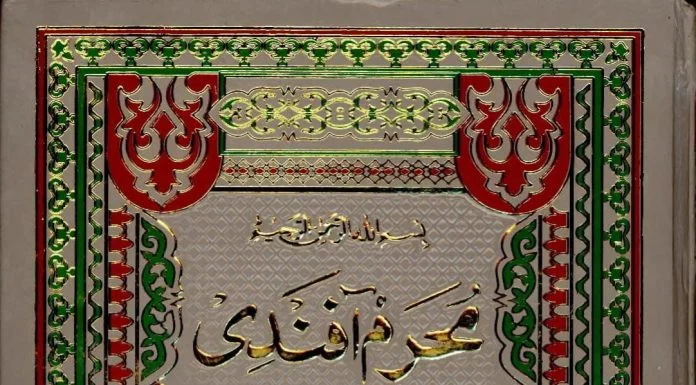 بسم الله الرحمن الرحيم
محرم آفندى